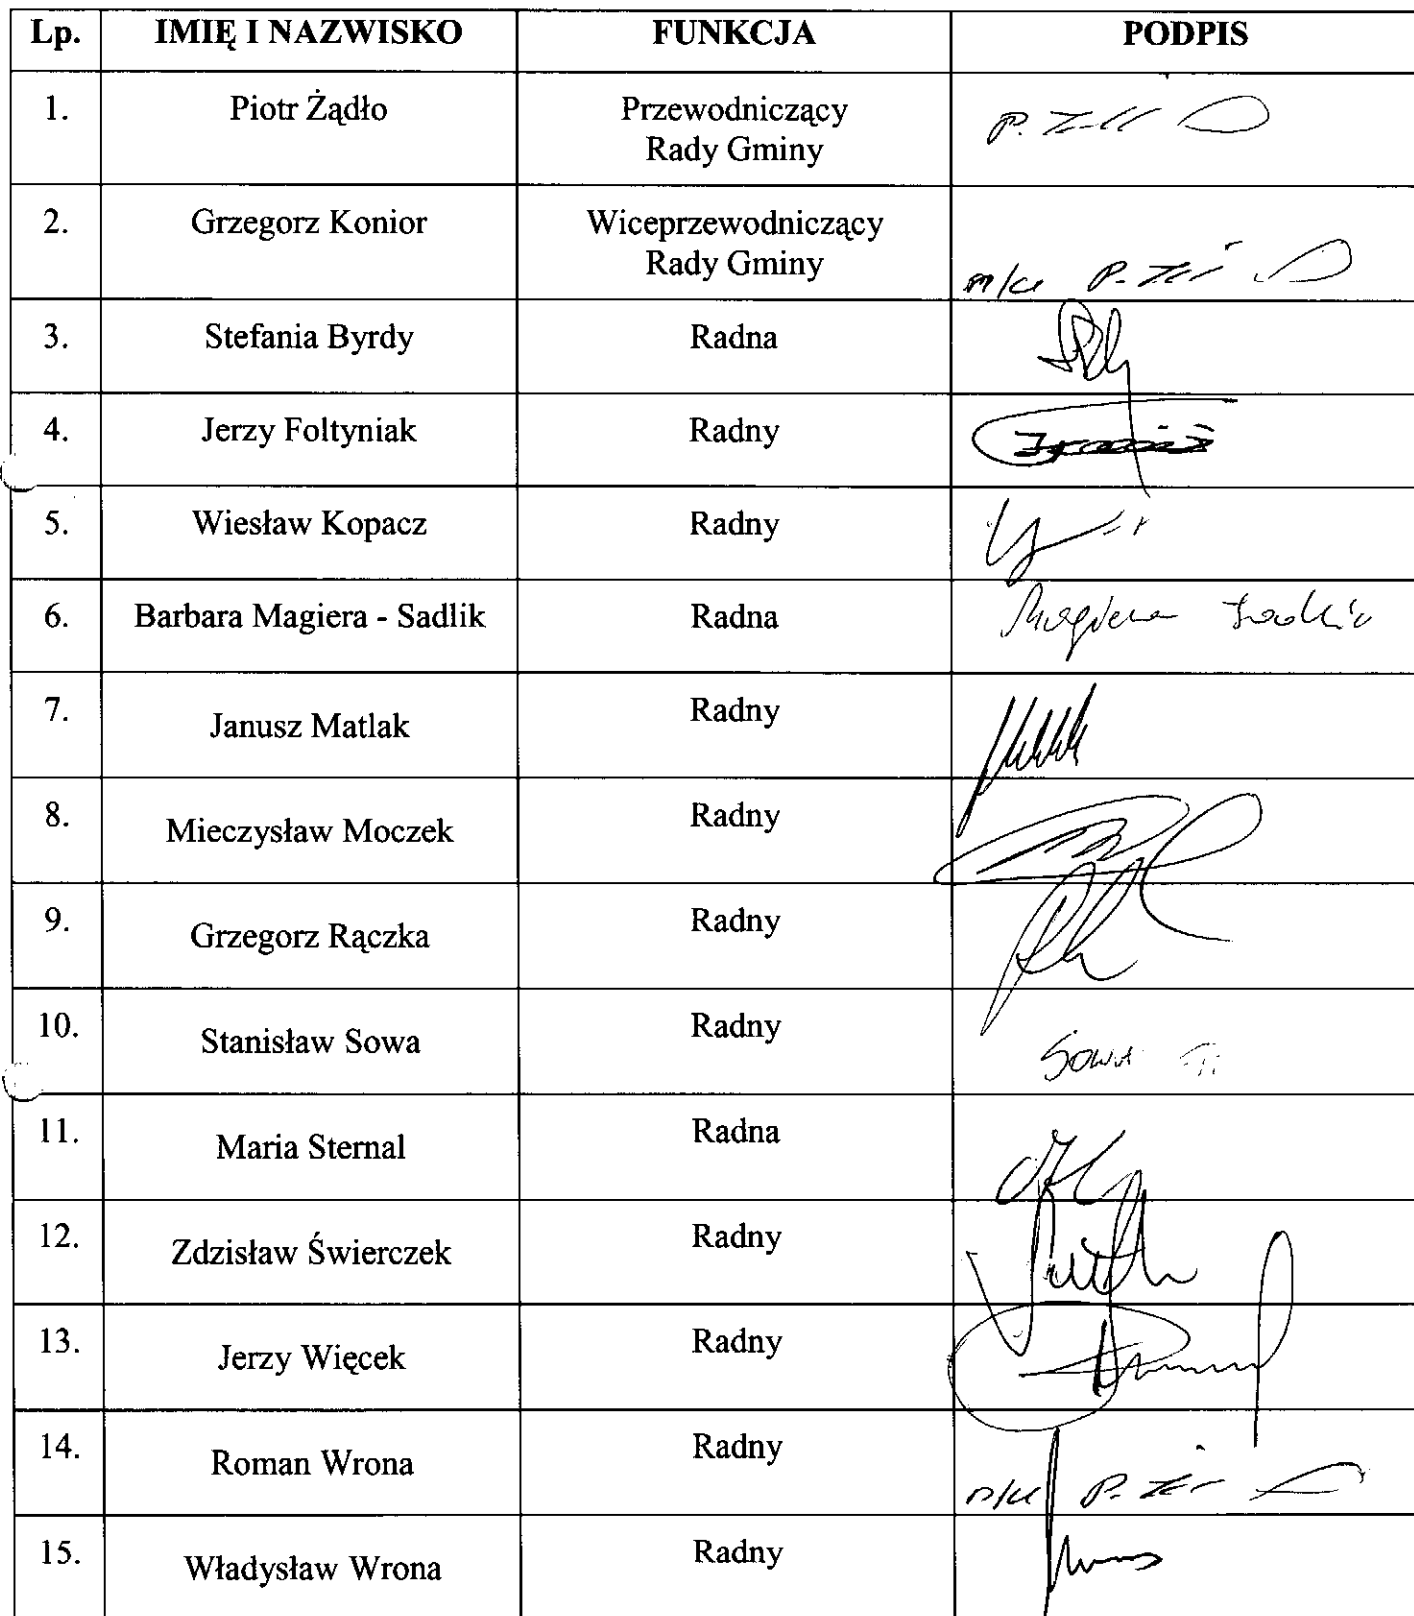 Lp. IMIĘ I NAZWISKO FUNKCJA PODPIS
1. Piotr Żądło Przewodniczący
Rady Gminy
2. Grzegorz Konior Wiceprzewodniczący
Rady Gminy
3. Stefania Byrdy Radna
4. Jerzy Foltyniak Radny
5. Wiesław Kopacz Radny
6. Barbara Magiera - Sadlik Radna Magiera Sadlik
7. Janusz Matlak Radny
8. Mieczysław Moczek Radny
9. Grzegorz Rączka Radny
10. Stanisław Sowa Radny Sowa
11. Maria Sternal Radna
12. Zdzisław Świerczek Radny
13. Jerzy Więcek Radny
14. Roman Wrona Radny
15. Władysław Wrona Radny